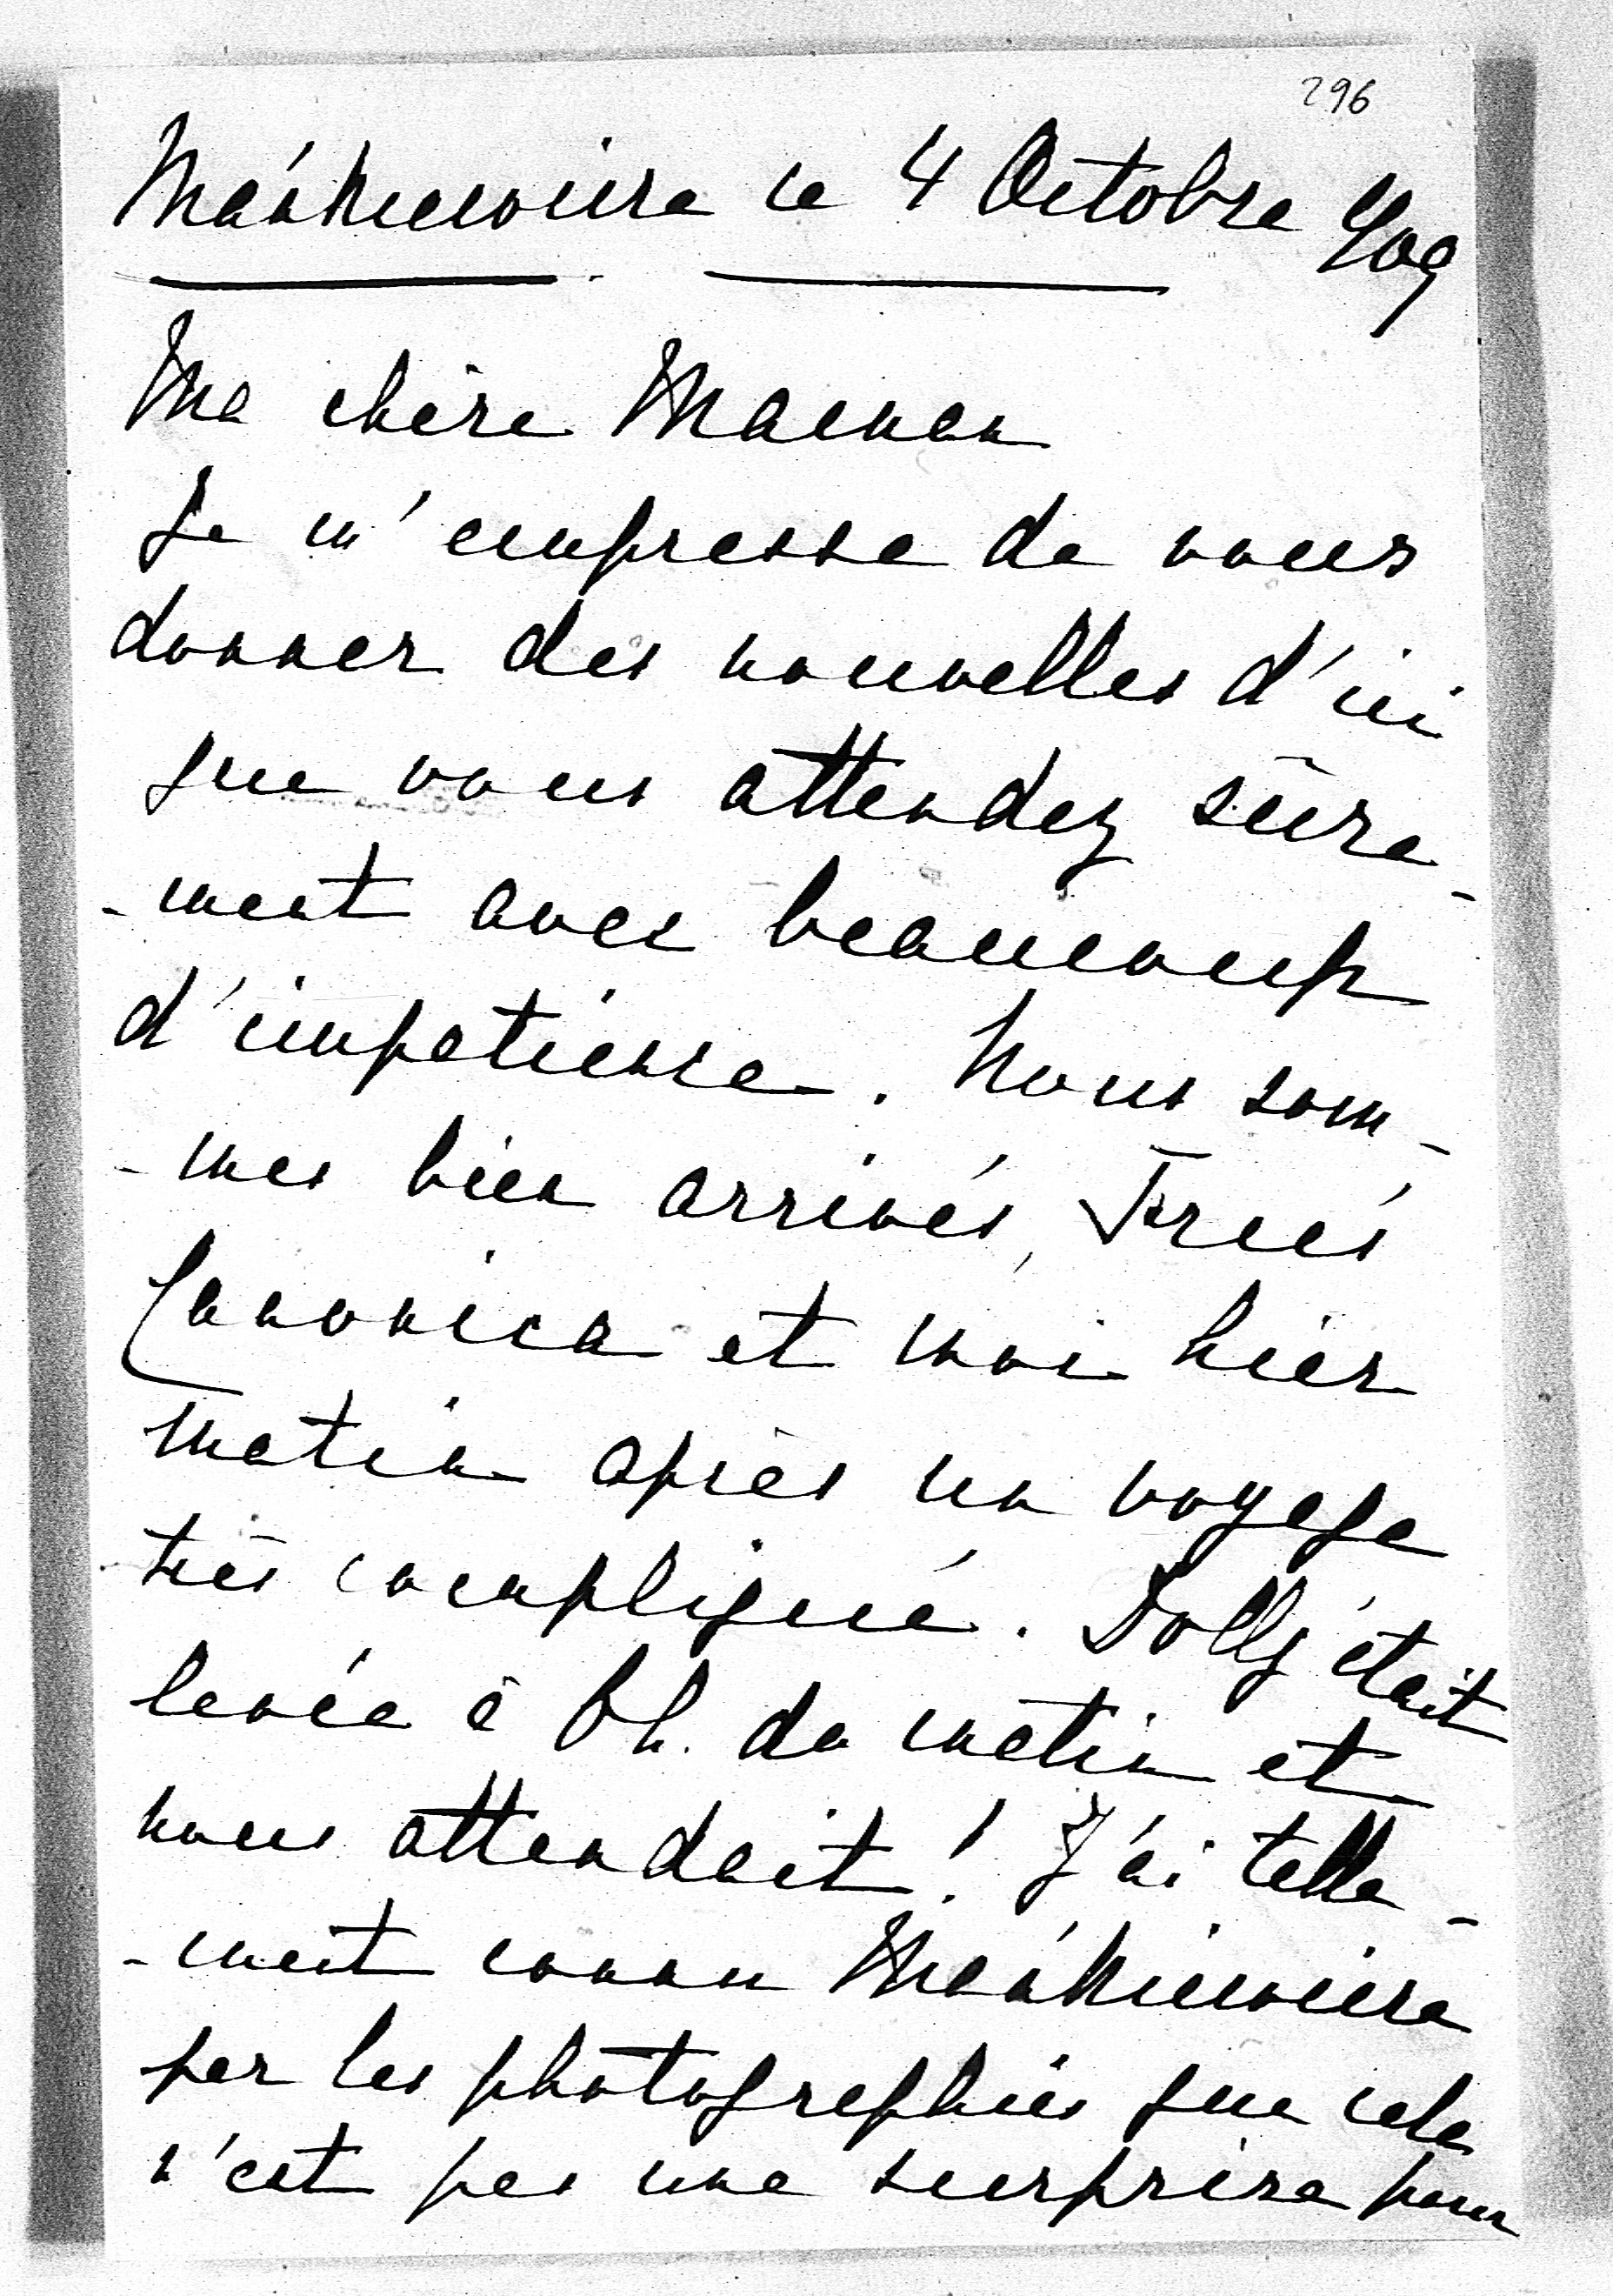 296
le 4 Octobre 909
Ma chère Maman
Je m'empresse de vous
donner des nouvelles d'ici
que vous attendez sûre-
-ment avec beaucoup
d'impatience. Nous som-
-mes bien arrivés,
Canonica et moi hier
matin après un voyage
très compliqué. Dolly était
levée à 6h. du matin et
nous attendait! J'ai telle-
-ment connu
par les photographies que cela
n'est pas une surprise pour